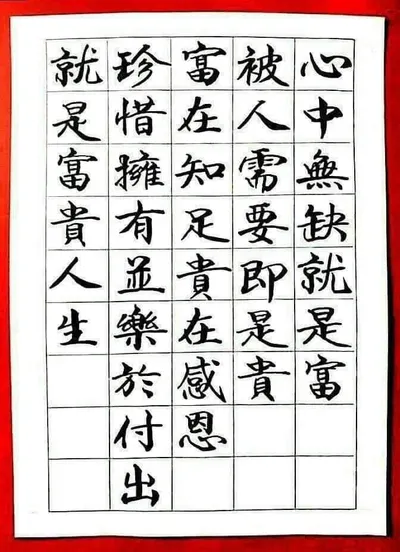 心中無缺就是富
被人需要即是貴
富在知足貴在感恩
珍惜擁有並樂於付出
就是富貴人生